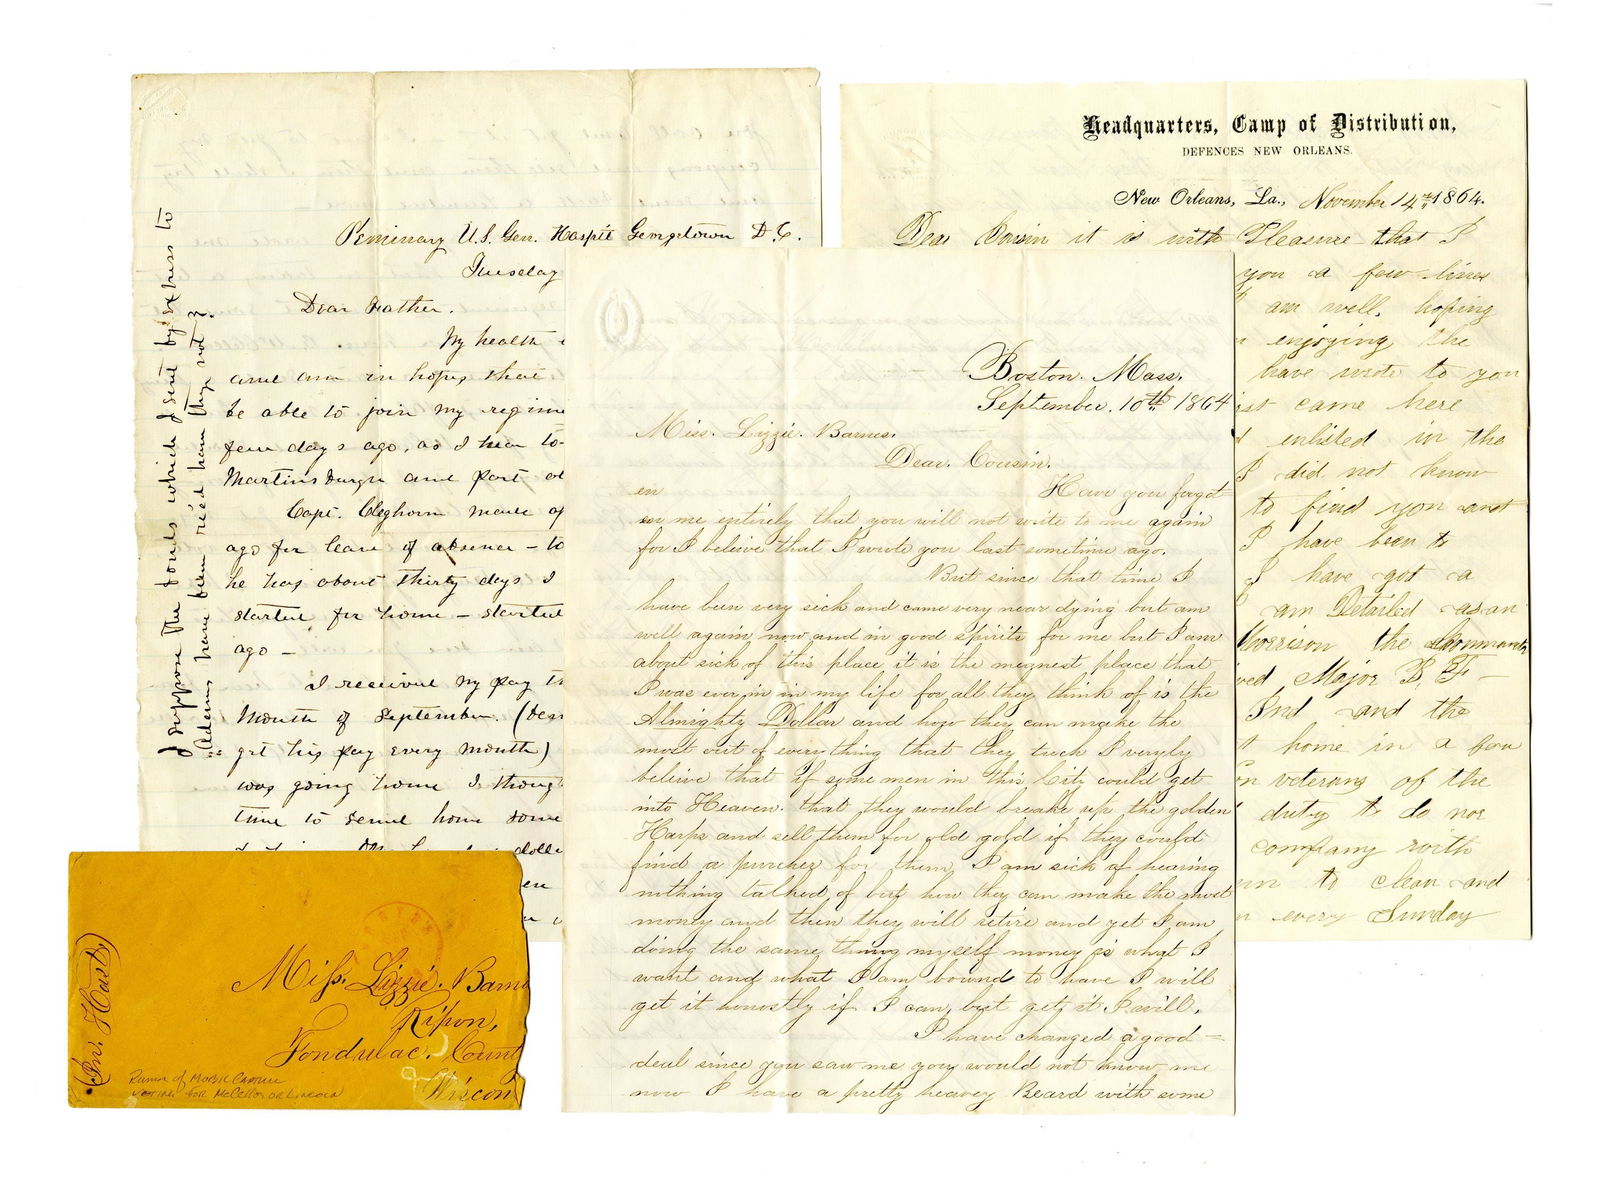 Seminary U.S. Gen. Hospit Georgetown D.C.
Tuesday
Dear Father.
My health
and am in hopes that
be able to join my regime
few days ago, as I hear to-
Martinsburgh and part of
Capt. Cleghorn made ap
ago for leave of absence - to
he has about thirty days I
started for home - started
ago -
I received my pay th
month of September. (Des
get his pay every month)
was going home I thoug
time to send home some
dolle
I suppose the bonds which I sent by express to
Adams have been rec'd have they not?
Headquarters, Camp of Distribution,
DEFENCES NEW ORLEANS.
New Orleans, La., November 14th 1864.
Dear Cousin it is with Pleasure that I
you a few lines
am well, hoping
enjoying the
have wrote to you
came here
enlisted in the
I did not know
to find you and
I have been to
I have got a
am Detailed as an
Morrison the Commandr
Major B, F
Ind and the
home in a few
veterans of the
duty to do nor
company with
to clean and
every Sunday
Boston. Mass.
September. 10th 1864
Miss. Lizzie. Barnes.
Dear. Cousin.
en Have you forgot
me entirely that you will not write to me again
for I beleive that I wrote you last sometime ago.
But since that time I
have been very sick and came very near dying but am
well again now and in good spirits for me but I am
about sick of this place it is the meanest place that
I was ever in in my life for all they think of is the
Almighty Dollar and how they can make the
most out of everything that they tuch I veryly
beleive that if some men in this City could get
into Heaven. that they would break up the golden
Harps and sell them for old gold if they could
find a purcher for them, I am sick of hearing
nothing talked of but how they can make the most
money and then they will retire and yet I am
doing the same thing myself money is what I
want and what I am bound to have I will
get it honestly if I can, but get it I will.
I have changed a good =
deal since you saw me you would not know me
now I have a pretty heavey Beard with some
Miss. Lizzie. Barn
Ripon,
Fondulac. Count
Wiscon
Rumor of Mobile Capture
voting for McClellan or Lincoln